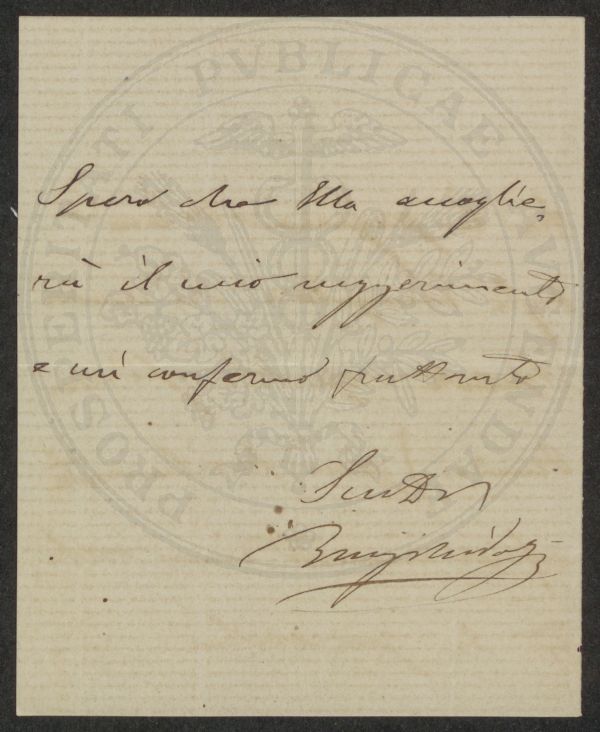 PROSPERITATI PVBLICAE AVGENDAE
Spero che Ella accoglie-
rà il mio suggerimento
e mi confermo frattanto
Luigi Ridolfi